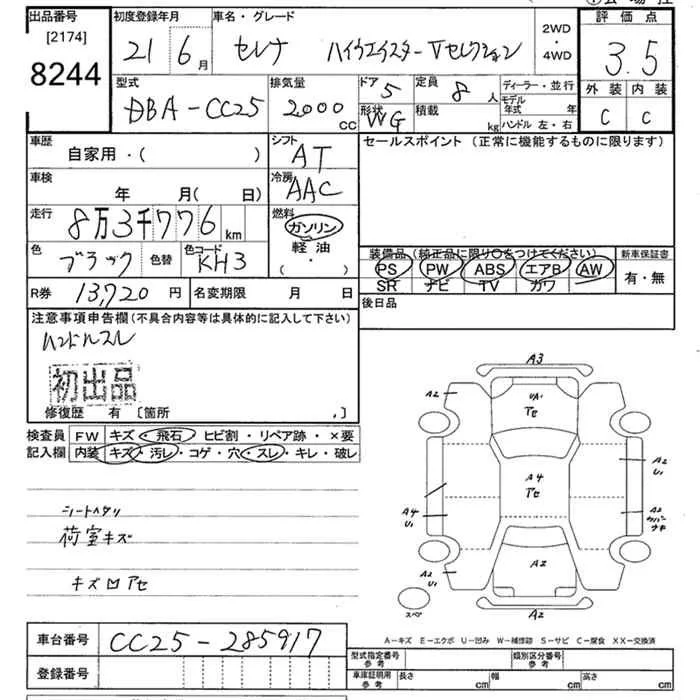 出品番号
[2174]
8244
初度登録年月
21 6月
車名・グレード
セレナ ハイウエイスターVセレクション
2WD
・
4WD
評価点
3.5
外装 内装
C C
型式
DBA-CC25
排気量
2000 cc
ドア 5
形状 WG
定員 8 人
積載 kg
ディーラー・並行
モデル年式 年
ハンドル 左・右
車歴
自家用・( )
シフト
AT
セールスポイント (正常に機能するものに限ります)
車検
年 月( 日)
冷房
AAC
走行
8万3千776 km
燃料
ガソリン
軽油
( ・ )
色
ブラック
色替
色コード
KH3
装備品 (純正品に限り○をつけてください)
PS PW ABS エアB AW
SR ナビ TV カワ
新車保証書
有・無
R券 13,720 円
名変期限 月 日
後日品
注意事項申告欄(不具合内容等は具体的に記入して下さい)
ハンドルスレ
初出品
修復歴 有 [箇所 , ]
検査員
記入欄
FW キズ・飛石・ヒビ割・リペア跡・×要
内装 キズ・汚レ・コゲ・穴・スレ・キレ・破レ
シートヘタリ
荷室キズ
キズ凹アセ
A3
A2
UA1
アセ
A4
アセ
A2
U1
A4
U1
A2
カバー
ワキ
A2
U1
A2
A2
スペア
A-キズ E-エクボ U-凹み W-補修跡 S-サビ C-腐食 XX-交換済
車台番号 CC25-285917
登録番号
型式指定番号
参考
類別区分番号
参考
車庫証明用
参考
長さ cm 幅 cm 高さ cm